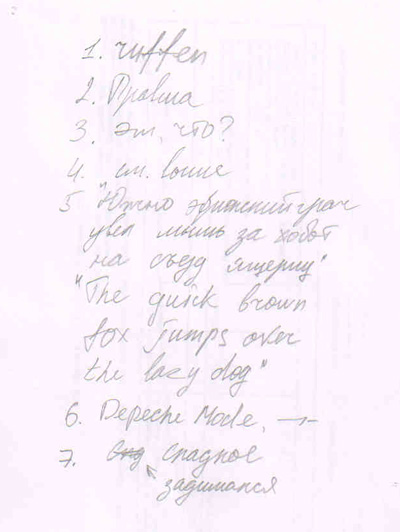 1. ruffen
2. Правша
3. Эт, что?
4. см. выше
5 "Южно эфиопский грач
увел мышь за хобот
на съезд ящериц"
"The quick brown
fox jumps over
the lazy dog"
6. Depeche Mode,
7. сладкое
задумался